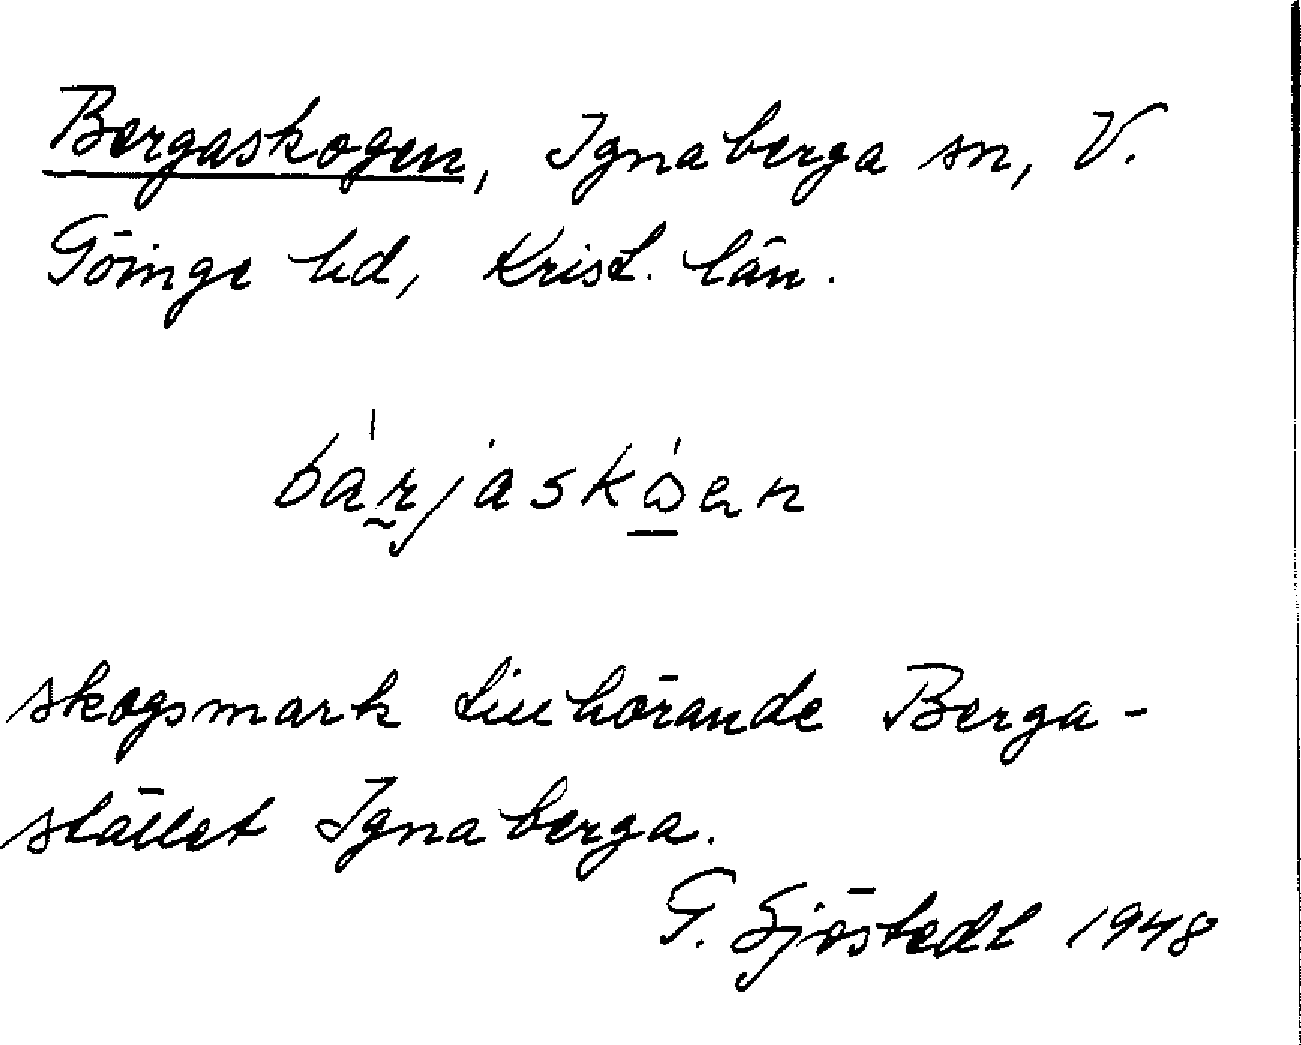 Bergaskogen, Ignaberga sn, V.
Göinge hd, Krist. län.
bàrjaskɷ̀en
skogsmark tillhörande Berga-
stället Ignaberga.
G. Sjöstedt 1948